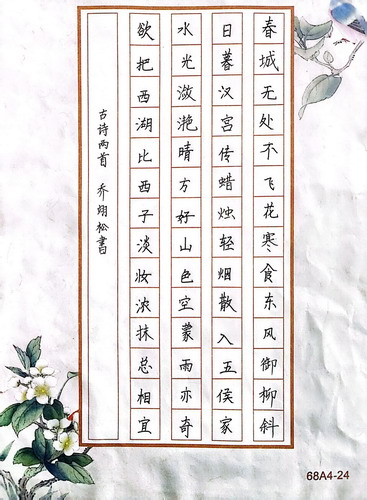 春城无处不飞花寒食东风御柳斜
日暮汉宫传蜡烛轻烟散入五侯家
水光潋滟晴方好山色空蒙雨亦奇
欲把西湖比西子淡妆浓抹总相宜
古诗两首 乔翊松書
68A4-24